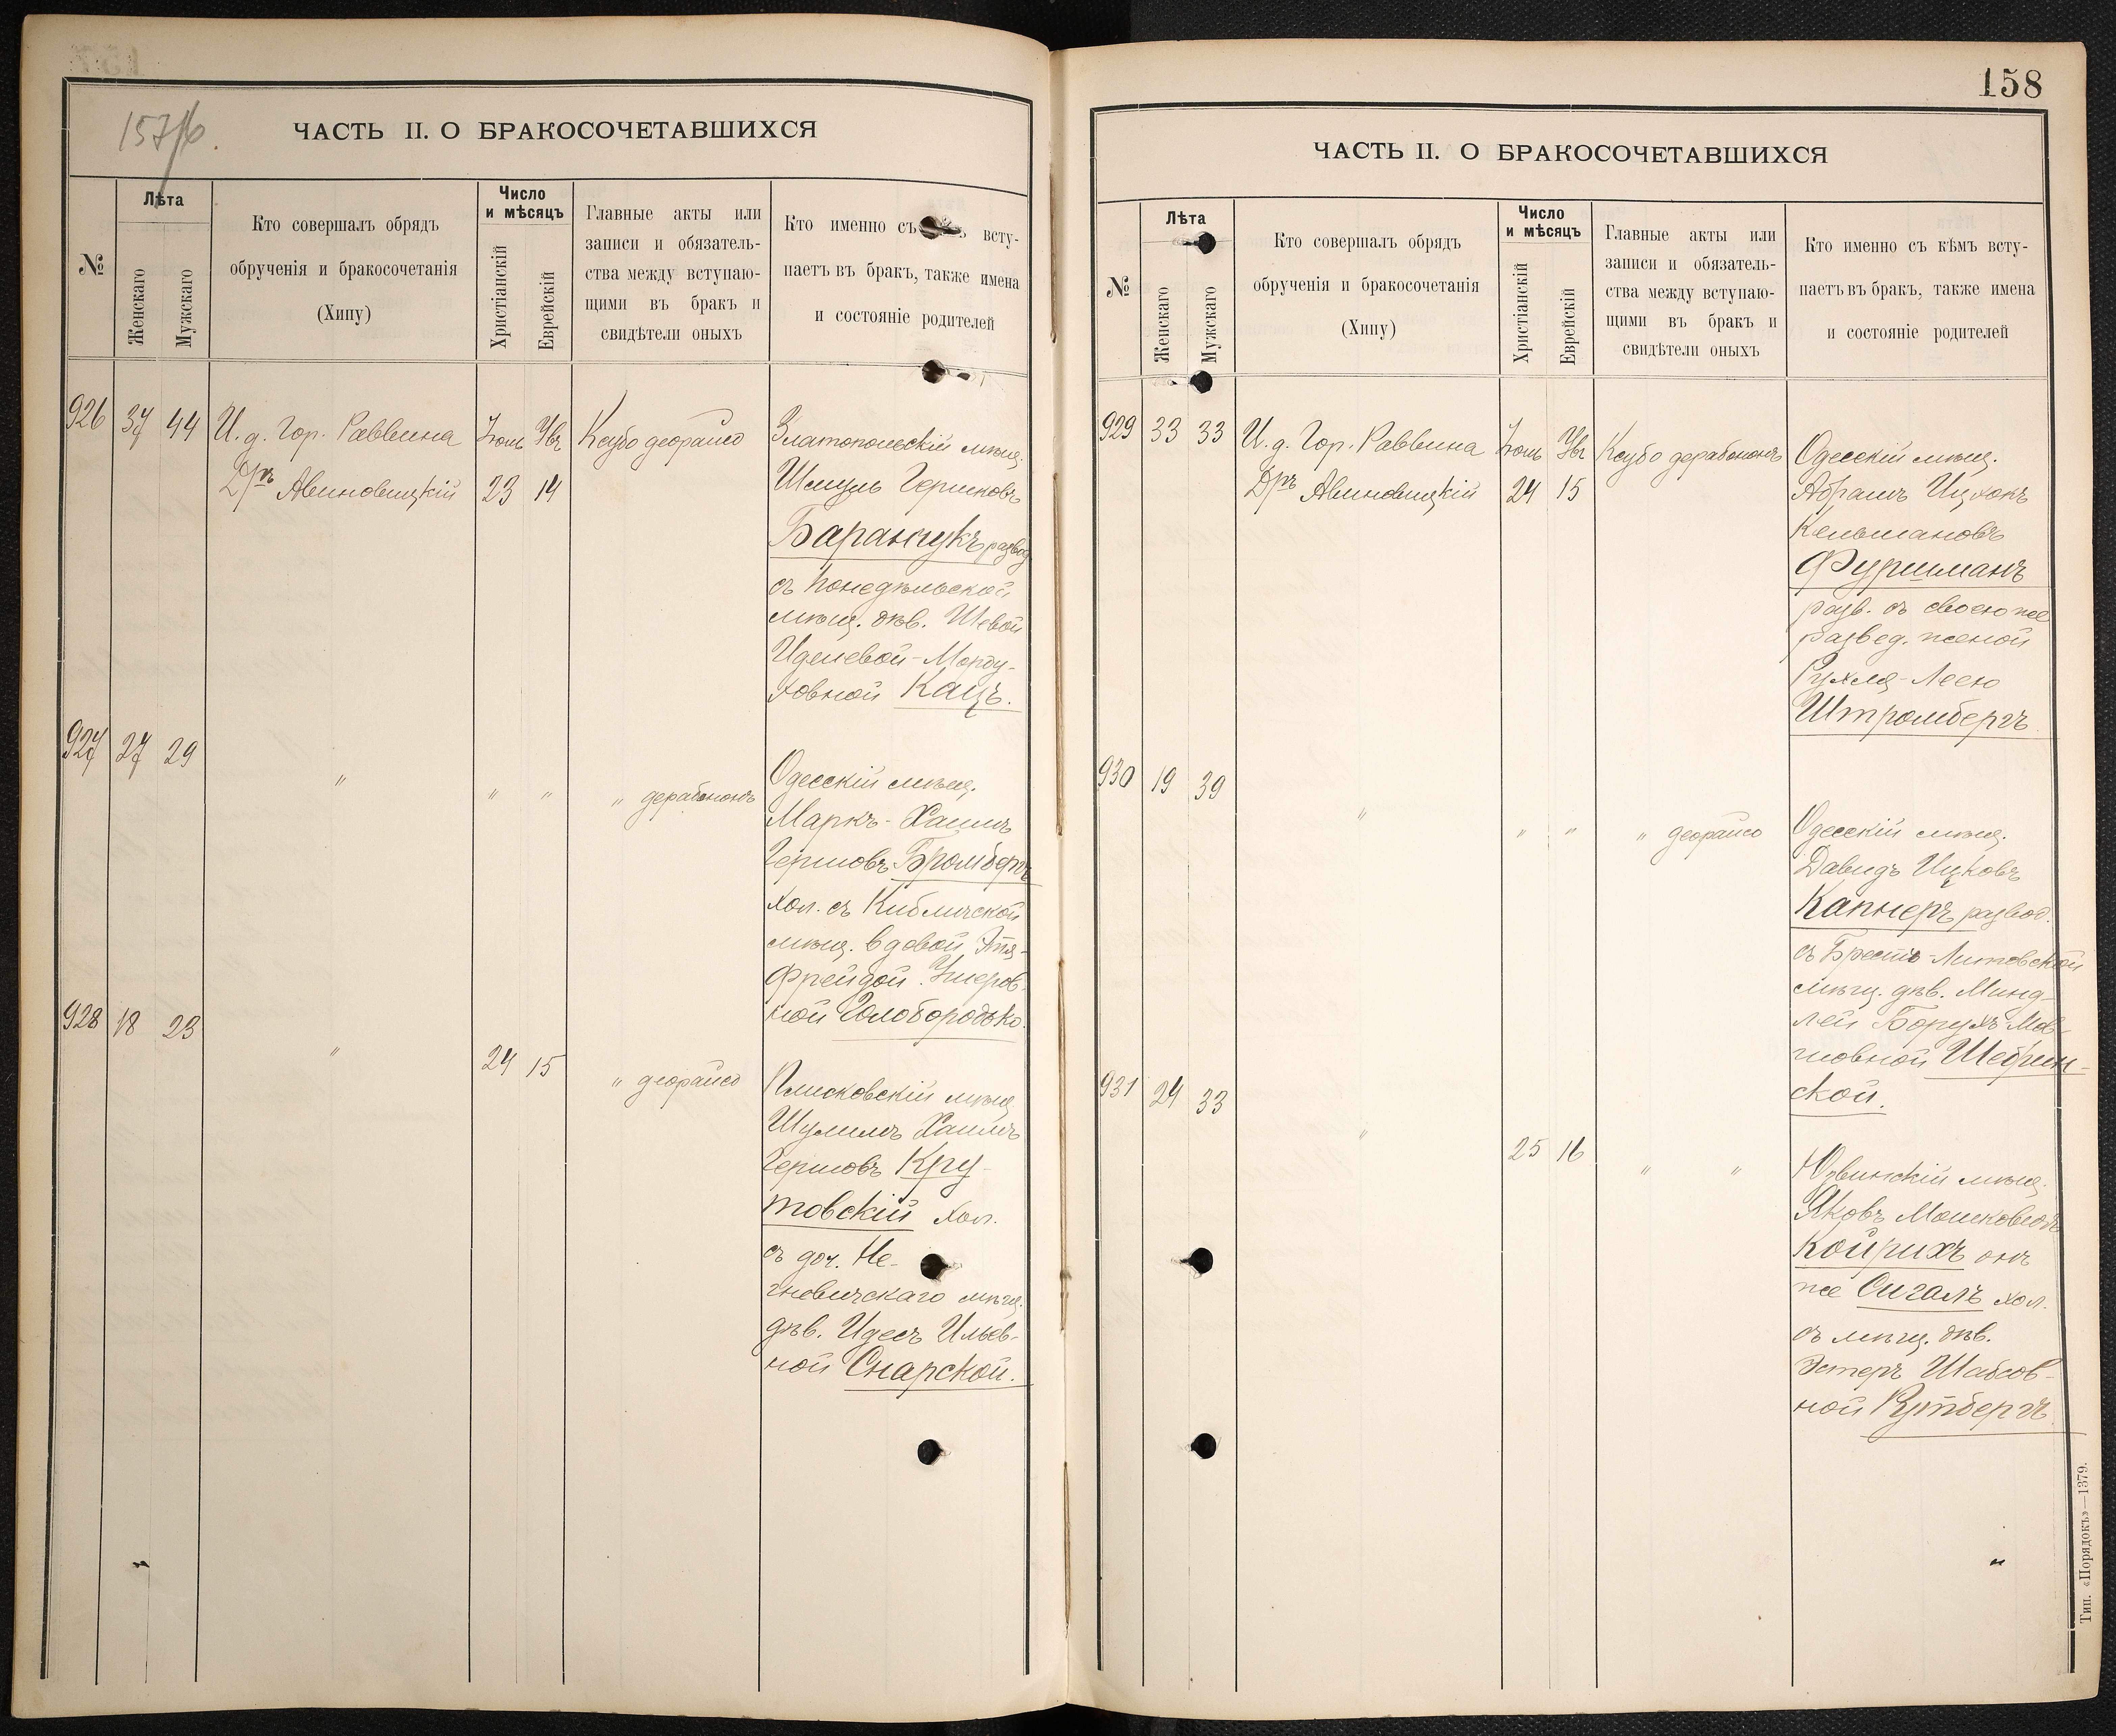 157/б.
ЧАСТЬ II. О БРАКОСОЧЕТАВШИХСЯ
№
Лѣта
Женскаго
Мужскаго
Кто совершалъ обрядъ
обрученія и бракосочетанія
(Хипу)
Число
и мѣсяцъ
Христіанскій
Еврейскій
Главные акты или
записи и обязатель-
ства между вступаю-
щими въ бракъ и
свидѣтели оныхъ
Кто именно съ всту-
паетъ въ бракъ, также имена
и состояніе родителей
926 37 44 И. д. Гор. Раввина Ксубо деорайсо Златопольскій мѣщ.
Дръ Авиновицкій 23 14 Шмуль Гершковъ
Баранчукъ развод
съ Понедѣльской
мѣщ. дѣв. Шевой
Иделевой-Морду-
ховной Кацъ.
927 27 29 " " " " дерабононъ Одесскій мѣщ.
Маркъ-Хаимъ
Гершовъ Бромбергъ
хол. съ Кибличской
мѣщ. вдовой Этя-
Фрейдой
ной Голобородько.
928 18 23 " 24 15 " деорайсо Плисковскій мѣщ
Шулимъ Хаимъ
Гершовъ Кру-
товскій хол.
съ доч. Не-
гневичскаго мѣщ.
дѣв. Идесъ Ильев-
ной Снарской.
158
ЧАСТЬ II. О БРАКОСОЧЕТАВШИХСЯ
№
Лѣта
Женскаго
Мужскаго
Кто совершалъ обрядъ
обрученія и бракосочетанія
(Хипу)
Число
и мѣсяцъ
Христіанскій
Еврейскій
Главные акты или
записи и обязатель-
ства между вступаю-
щими въ бракъ и
свидѣтели оныхъ
Кто именно съ кѣмъ всту-
паетъ въ бракъ, также имена
и состояніе родителей
929 33 33 И. д. Гор. Раввина Ксубо дерабононъ Одесскій мѣщ.
Дръ Авиновицкій 24 15 Абрамъ Ицхокъ
Кельмановъ
Фуршманъ
разв. съ своею же
развед. женой
Рухля-Леею
Штромбергъ
930 19 39 " " " " деорайсо Одесскій мѣщ.
Давидъ Ицковъ
Капнеръ развод.
съ Брестъ-Литовской
мѣщ. дѣв. Минд-
лей Борухъ Мов-
шовной Шебрин-
ской.
931 24 33 " 25 16 " " Юзвинскій мѣщ.
Яковъ Мошковъ
Койрихъ онъ
же Сигалъ хол.
съ мѣщ. дѣв.
Эстеръ Шабсов-
ной Рутбергъ
Тип. «Порядокъ»—1379.